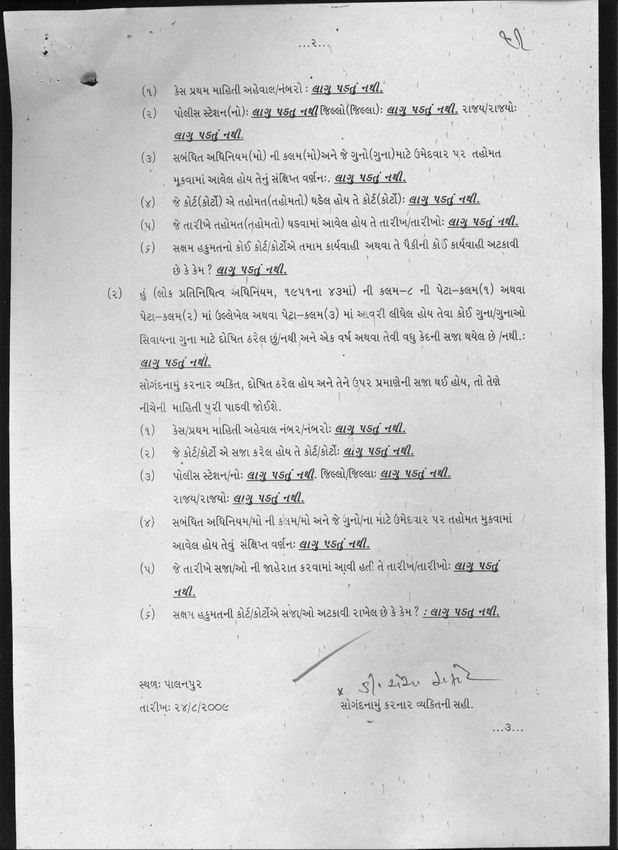 ...૨...
(૧) કેસ પ્રથમ માહિતી અહેવાલ/નંબરો : લાગુ પડતું નથી.
(૨) પોલીસ સ્ટેશન(નો): લાગુ પડતુ નથી જિલ્લો(જિલ્લા): લાગુ પડતું નથી. રાજ્ય/રાજયો:
લાગુ પડતું નથી.
(૩) સબંધિત અધિનિયમ(મો) ની કલમ(મો)અને જે ગુનો(ગુના)માટે ઉમેદવાર પર તહોમત
મૂકવામાં આવેલ હોય તેનું સંક્ષિપ્ત વર્ણન:. લાગુ પડતું નથી.
(૪) જે કોર્ટ(કોર્ટો) એ તહોમત(તહોમતો) ઘડેલ હોય તે કોર્ટ(કોર્ટો): લાગુ પડતું નથી.
(૫) જે તારીખે તહોમત(તહોમતો) ઘડવામાં આવેલ હોય તે તારીખ/તારીખો: લાગુ પડતું નથી.
(૬) સક્ષમ હકુમતનો કોઈ કોર્ટ/કોર્ટોએ તમામ કાર્યવાહી અથવા તે પૈકીની કોઈ કાર્યવાહી અટકાવી
છે કે કેમ ? લાગુ પડતું નથી.
(૨) હું (લોક પ્રતિનિધિત્વ અધિનિયમ, ૧૯૫૧ના ૪૩માં) ની કલમ–૮ ની પેટા–કલમ(૧) અથવા
પેટા–કલમ(૨) માં ઉલ્લેખેલ અથવા પેટા–કલમ(૩) માં આવરી લીધેલ હોય તેવા કોઈ ગુના/ગુનાઓ
સિવાયના ગુના માટે દોષિત ઠરેલ છું/નથી અને એક વર્ષ અથવા તેવી વધુ કેદની સજા થયેલ છે /નથી.:
લાગુ પડતું નથી.
સોગંદનામું કરનાર વ્યકિત, દોષિત ઠરેલ હોય અને તેને ઉપર પ્રમાણેની સજા થઈ હોય, તો તેણે
નીચેની માહિતી પુરી પાડવી જોઈશે.
(૧) કેસ/પ્રથમ માહિતી અહેવાલ નંબર/નંબરો: લાગુ પડતું નથી.
(૨) જે કોર્ટ/કોર્ટો એ સજા કરેલ હોય તે કોર્ટ/કોર્ટો: લાગુ પડતું નથી.
(૩) પોલીસ સ્ટેશન/નો: લાગુ પડતું નથી. જિલ્લો/જિલ્લા: લાગુ પડતું નથી.
રાજય/રાજયો: લાગુ પડતું નથી.
(૪) સબંધિત અધિનિયમ/મો ની કલમ/મો અને જે ગુનો/ના માટે ઉમેદવાર પર તહોમત મુકવામાં
આવેલ હોય તેવું સંક્ષિપ્ત વર્ણન: લાગુ પડતું નથી.
(૫) જે તારીખે સજા/ઓ ની જાહેરાત કરવામાં આવી હતી તે તારીખ/તારીખો: લાગુ પડતું
નથી.
(૬) સક્ષમ હકુમતની કોર્ટ/કોર્ટોએ સજા/ઓ અટકાવી રાખેલ છે કે કેમ ? : લાગુ પડતું નથી.
સ્થળ: પાલનપુર
તારીખ: ૨૪/૮/૨૦૦૯
x
સોગંદનામું કરનાર વ્યકિતની સહી.
...૩...